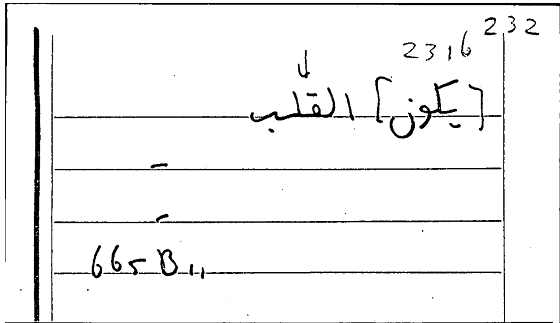 232
2316
↓
[يكون] القلب
–
–
665 B 11